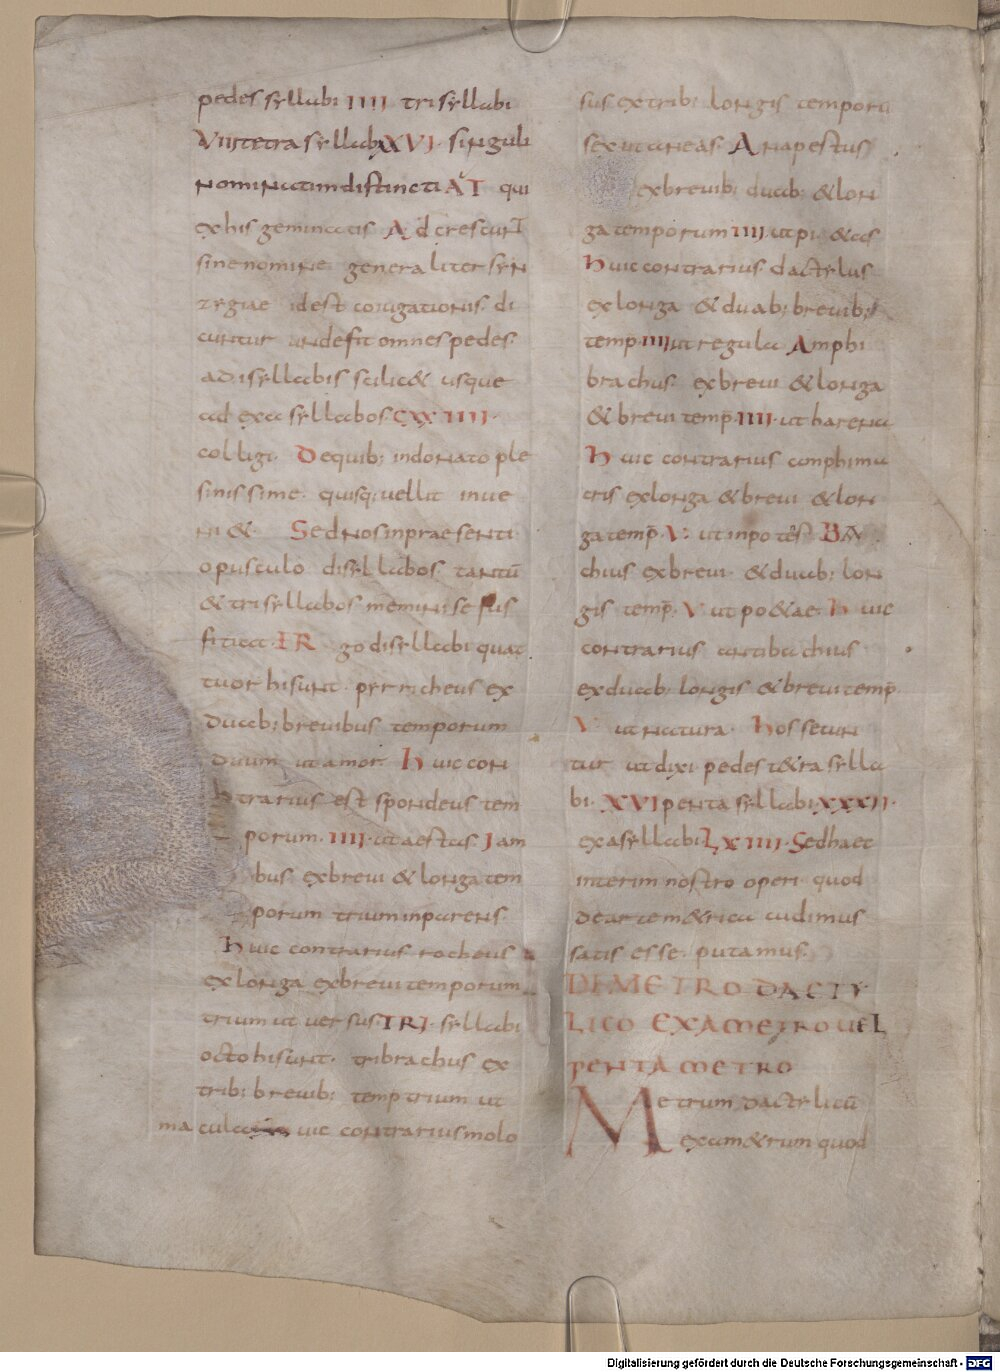 pedes syllabi IIII trisyllabi
VIII tetrasyllabi XVI· singuli
nominatim distincti AT qui
ex his geminatis Adcrescunt
sine nomine generaliter syn
zygiae idest coniugationis di
cuntur undefit omnes pedes·
adisyllabis scilic& usque
ad exasyllabos CXXIIII·
colligi· Dequib; indonato ple
nissime· quisq; vellit inue
ni&· Sed nos inpraesenti·
opusculo disyllabos tantū
& trisyllabos meminisse suf
ficiat· ER go disyllabi quat
tuor hi sunt· pyrricheus ex
duab; brevibus temporum
duum ut amor· Huic con
trarius est spondeus tem
porum· IIII· ut aestas· Iam
bus· exbreui & longa tem
porum trium inparens·
Huic contrarius rocheus
exlonga exbreui temporum
trium ut uersus· TRI· syllabi
octo hi sunt· tribrachus ex
trib; brevib; temp trium ut
macula uic contrarius molo
sus extrib; longis temporū
sex ut aeneas· Anapestus
exbreuib; duab; & lon
ga temporum IIII· ut pi&as
Huic contrarius dactylus
exlonga & duab; breuib;
temp̄ IIII ut regula Amphi
brachus exbreui & longa
& breui temp̄ IIII· ut harena
Huic contrarius amphima
crus exlonga & breui & lon
ga temp̄ V· ut inpotēs· BA
chius exbreui & duab; lon
gis temp̄· V ut po&ae· Huic
contrarius antibachius
exduab; longis & breui temp̄
V· ut natura· Hos secun
tur ut dixi pedes t&rasylla
bi· XVI pentasyllabi XXXII·
exasyllabi LXIIII· Sed haec
interim nostro operi quod
dearte m&rica cudimus
satis esse putamus·
DE METRO DACTY
LICO EXAMETRO VEL
PENTAMETRO
Metrum dactylicū
exam&rum quod
Digitalisierung gefördert durch die Deutsche Forschungsgemeinschaft - DFG